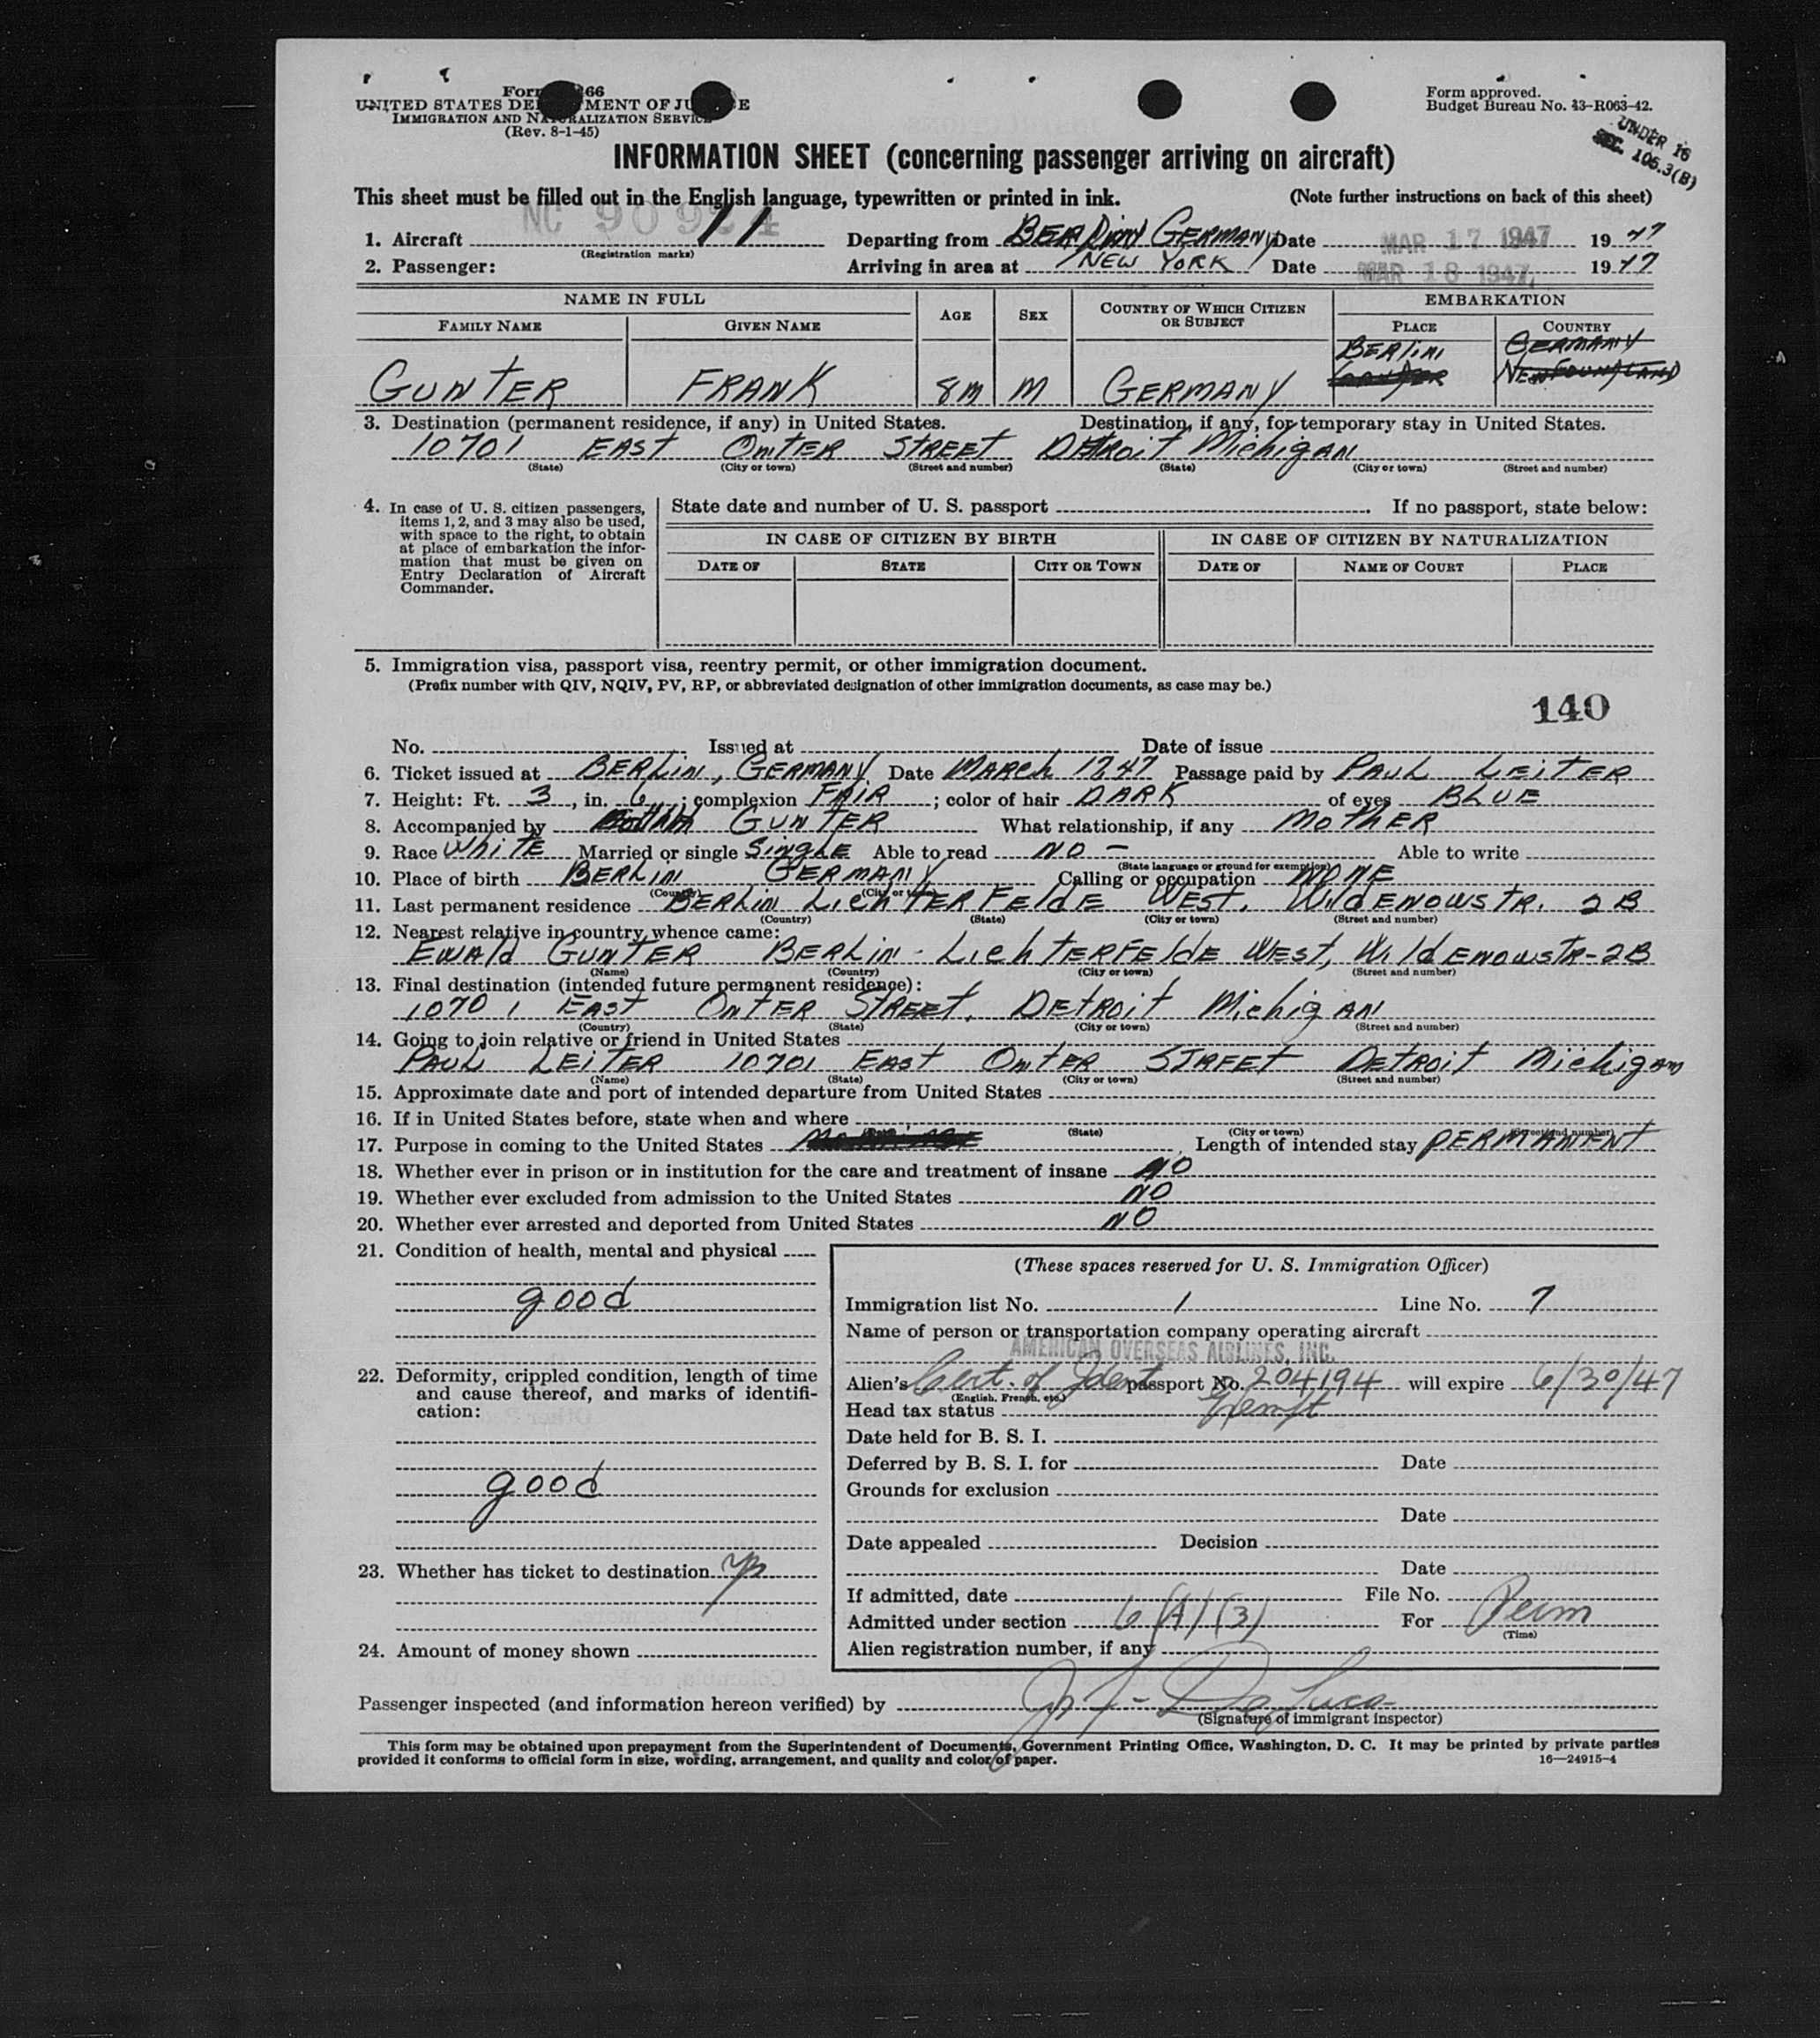 Form 66
UNITED STATES DE MENT OF JU E
IMMIGRATION AND NATURALIZATION SERVICE
(Rev. 8-1-45)
Form approved.
Budget Bureau No. 43-R063-42.
UNDER 16
SEC. 106.3(B)
INFORMATION SHEET (concerning passenger arriving on aircraft)
This sheet must be filled out in the English language, typewritten or printed in ink. (Note further instructions on back of this sheet)
1. Aircraft NC 90924 Departing from BERLIN GERMANY Date MAR 17 1947 19 47
(Registration marks)
2. Passenger: Arriving in area at NEW YORK Date MAR 18 1947 19 47
NAME IN FULL AGE SEX COUNTRY OF WHICH CITIZEN OR SUBJECT EMBARKATION
FAMILY NAME GIVEN NAME PLACE COUNTRY
BERLIN GERMANY
GUNTER FRANK 8M M GERMANY NEWFOUNDLAND
3. Destination (permanent residence, if any) in United States. Destination, if any, for temporary stay in United States.
10701 EAST OUTER STREET DETROIT MICHIGAN
(State) (City or town) (Street and number) (State) (City or town) (Street and number)
4. In case of U. S. citizen passengers,
items 1, 2, and 3 may also be used,
with space to the right, to obtain
at place of embarkation the infor-
mation that must be given on
Entry Declaration of Aircraft
Commander.
State date and number of U. S. passport . If no passport, state below:
IN CASE OF CITIZEN BY BIRTH IN CASE OF CITIZEN BY NATURALIZATION
DATE OF STATE CITY OR TOWN DATE OF NAME OF COURT PLACE
5. Immigration visa, passport visa, reentry permit, or other immigration document.
(Prefix number with QIV, NQIV, PV, RP, or abbreviated designation of other immigration documents, as case may be.)
140
No. Issued at Date of issue
6. Ticket issued at BERLIN, GERMANY Date MARCH 1747 Passage paid by PAUL LEITER
7. Height: Ft. 3, in. 6; complexion FAIR; color of hair DARK of eyes BLUE
8. Accompanied by GUNTER What relationship, if any MOTHER
9. Race WHITE Married or single SINGLE Able to read NO - Able to write
(State language or ground for exemption)
10. Place of birth BERLIN GERMANY Calling or occupation NONE
(Country) (City or town)
11. Last permanent residence BERLIN LICHTERFELDE WEST, WILDENOWSTR. 2B
(Country) (State) (City or town) (Street and number)
12. Nearest relative in country whence came:
EWALD GUNTER BERLIN - LICHTERFELDE WEST, WILDENOWSTR-2B
(Name) (Country) (City or town) (Street and number)
13. Final destination (intended future permanent residence):
10701 EAST OUTER STREET, DETROIT MICHIGAN
(Country) (State) (City or town) (Street and number)
14. Going to join relative or friend in United States
PAUL LEITER 10701 EAST OUTER STREET DETROIT MICHIGAN
(Name) (State) (City or town) (Street and number)
15. Approximate date and port of intended departure from United States
16. If in United States before, state when and where
(State) (City or town) (Street and number)
17. Purpose in coming to the United States Length of intended stay PERMANENT
18. Whether ever in prison or in institution for the care and treatment of insane NO
19. Whether ever excluded from admission to the United States NO
20. Whether ever arrested and deported from United States NO
21. Condition of health, mental and physical
good
22. Deformity, crippled condition, length of time
and cause thereof, and marks of identifi-
cation:
good
23. Whether has ticket to destination yes
24. Amount of money shown
(These spaces reserved for U. S. Immigration Officer)
Immigration list No. 1 Line No. 7
Name of person or transportation company operating aircraft
AMERICAN OVERSEAS AIRLINES, INC.
Alien's Cert. of Ident passport No. 204194 will expire 6/30/47
(English, French, etc.)
Head tax status Exempt
Date held for B. S. I.
Deferred by B. S. I. for Date
Grounds for exclusion
Date
Date appealed Decision
Date
If admitted, date File No.
Admitted under section 6 (A) (3) For Perm
(Time)
Alien registration number, if any
Passenger inspected (and information hereon verified) by
(Signature of immigrant inspector)
This form may be obtained upon prepayment from the Superintendent of Documents, Government Printing Office, Washington, D. C. It may be printed by private parties
provided it conforms to official form in size, wording, arrangement, and quality and color of paper. 16—24915-4